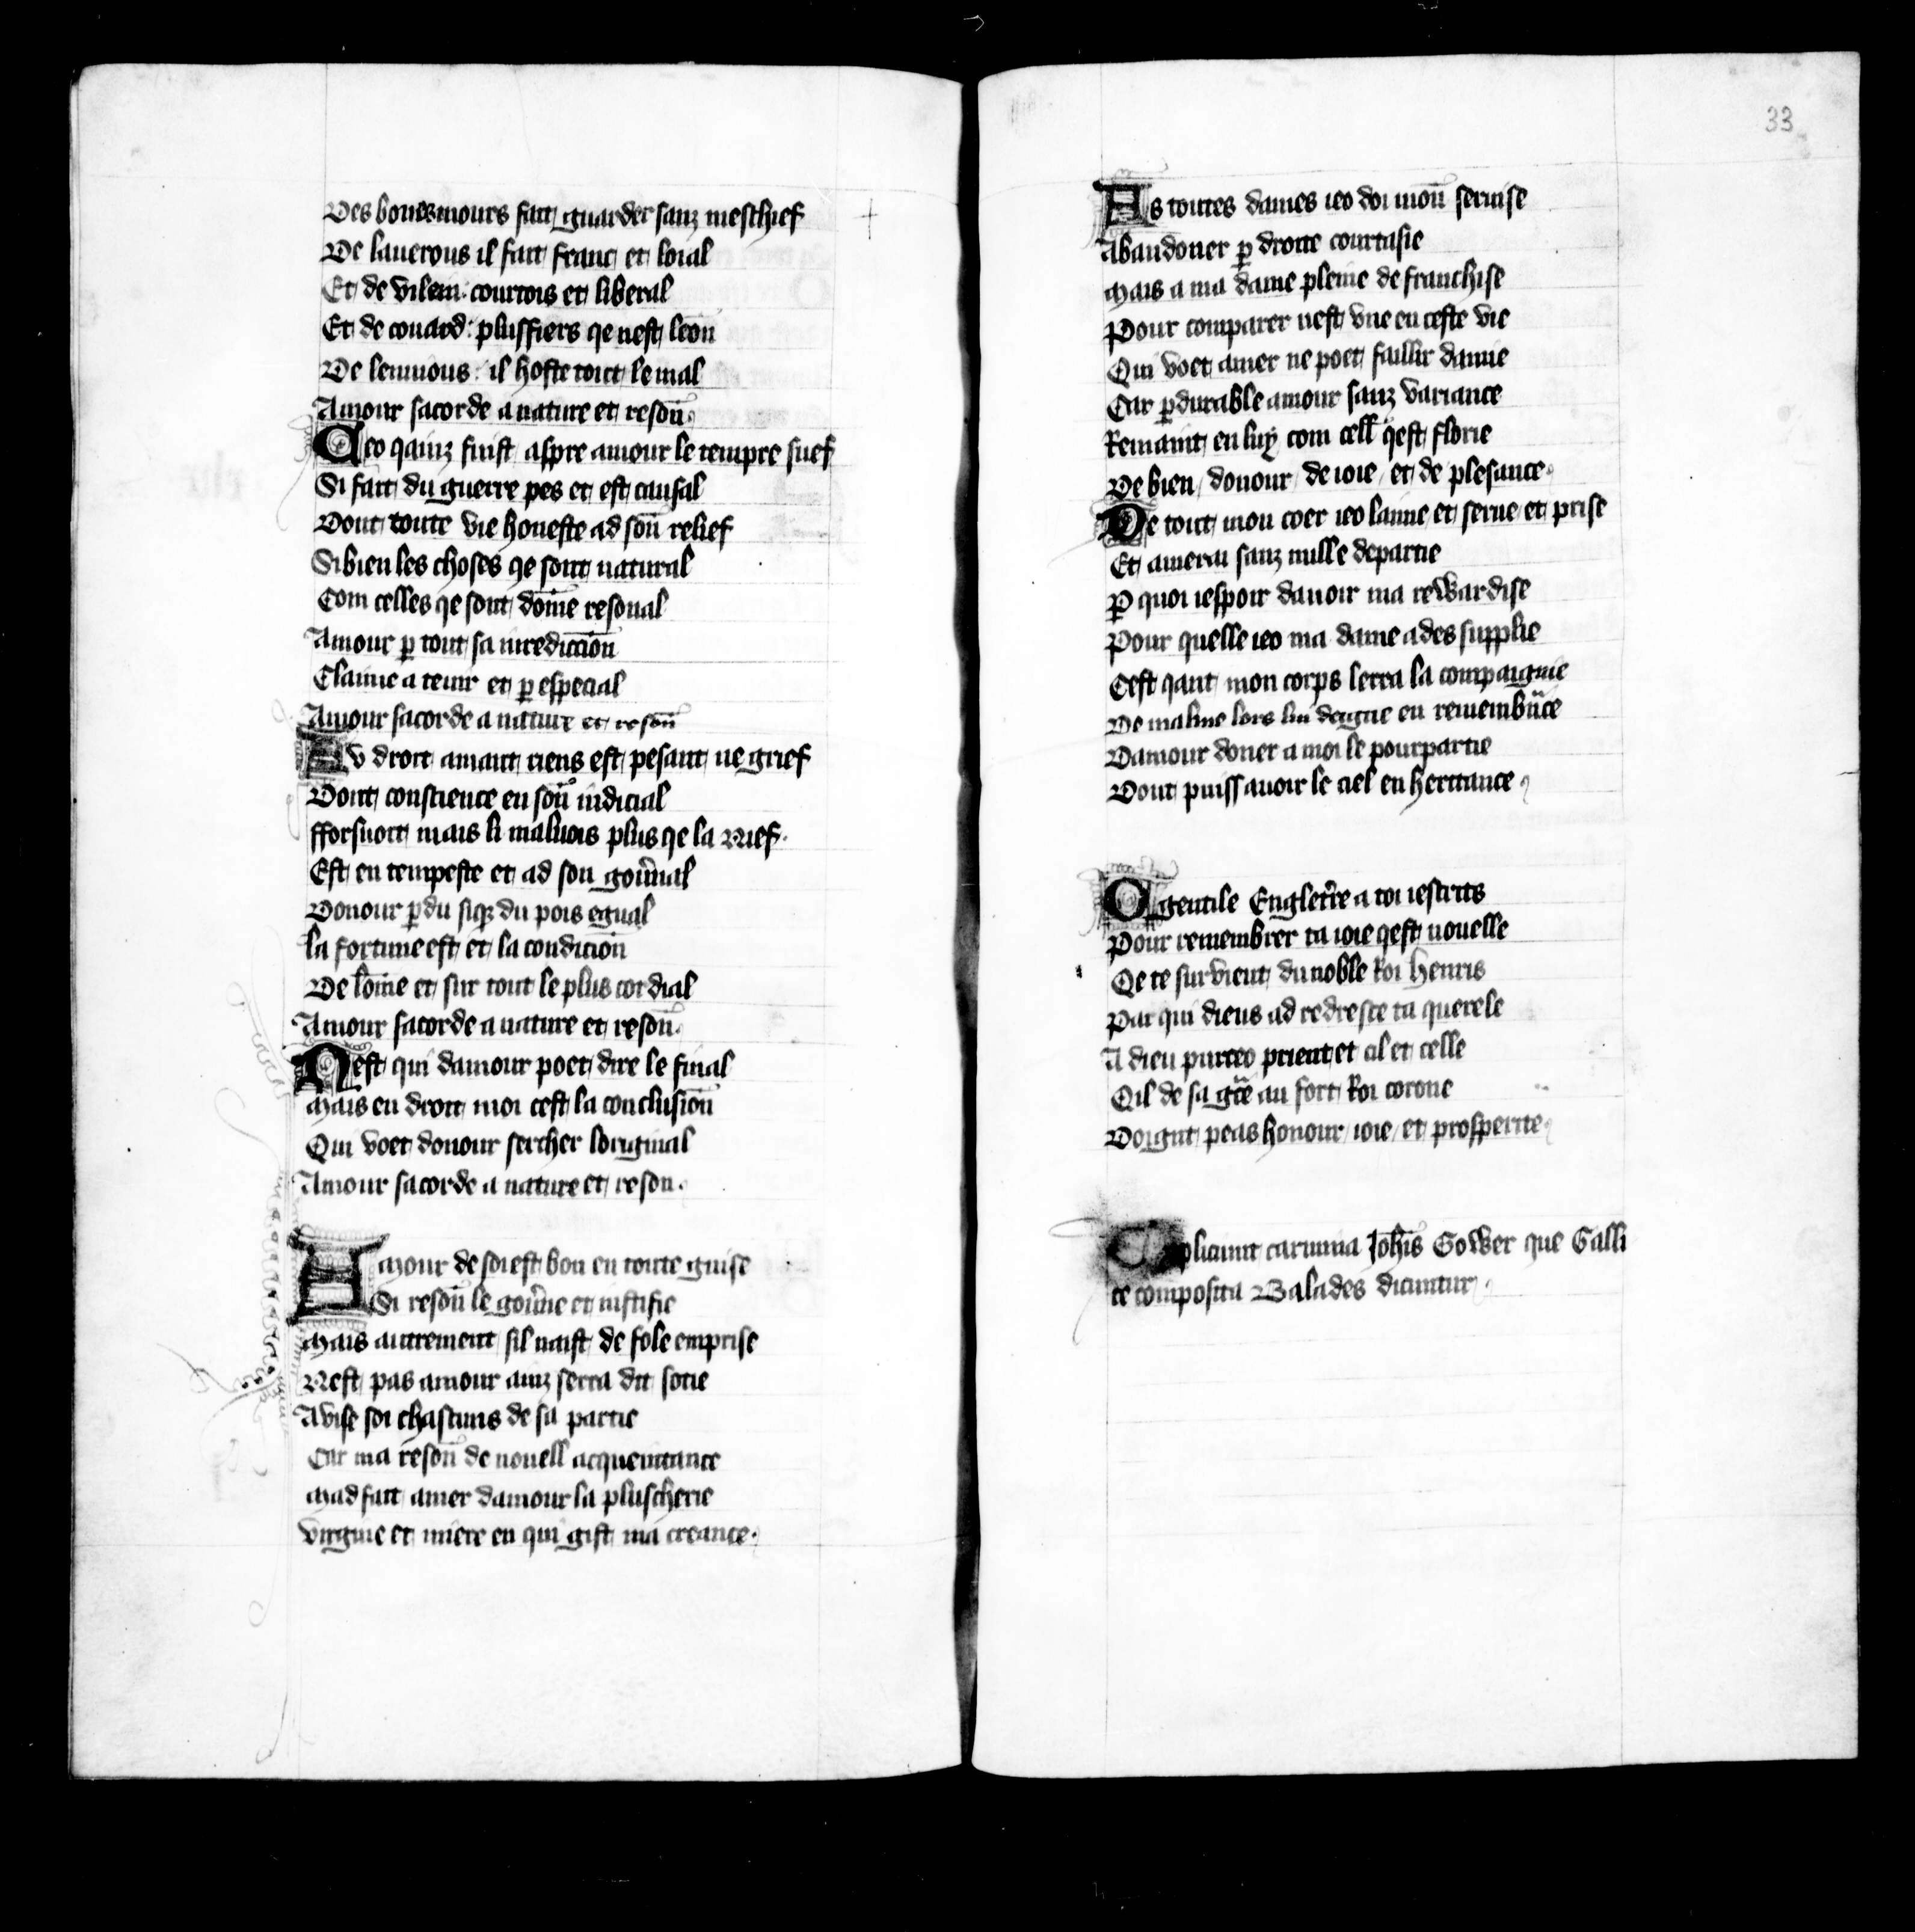 Des bones mours fait guarder sanz meschief
De lauerous il fait franc et loial
Et de vilein: courtois et liberal
Et de couard: plussfiers qe nest leon̄
De lenuious: il hoste tout le mal
Amour sacorde a nature et reson̄
Ceo qainz fuist aspre amour le tempre suef
Si fait du guerre pes et est causal
Dont toute vie honeste ad son̄ relief
Sibien les choses qe sont natural
Com celles qe sont dom̄e resonal
Amour ꝑ tout sa iuredicc̄ion̄
Claime a tenir et ꝑ especial
Amour sacorde a nature et reson̄
Av droit amant riens est pesant ne grief
Dont conscience en son̄ iudicial
fforsuoit mais li maluois plus qe la Nief
Est en tempeste et ad son gou̅nal
Donour ꝑdu siqꝫ du pois egual
la fortune est et la condicion̄
De lom̄e et sur tout le plus cordial
Amour sacorde a nature et reson̄
Nest qui damour poet dire le final
Mais en droit moi cest la conclusion̄
Qui voet donour sercher loriginal
Amour sacorde a nature et reson
Amour de soi est bon en toute guise
Si reson̄ le gou̅ne et iustifie
Mais autrement sil naist de fole emprise
Nest pas amour ainz serra dit sotie
Avise soi chascuns de sa partie
Car ma reson̄ de nouell acqueintance
Mad fait amer damour la pluscherie
virgine et miere en qui gist ma creance
33
As toutes dames ieo doi mon̄ seruise
Abandoner ꝑ droite courtasie
Mais a ma dame pleine de franchise
Pour comparer nest vne en ceste vie
Qui voet amer ne poet faillir damie
Car ꝑdurable amour sanz variance
Remaint en luy com cell qest florie
De bien / donour / de ioie / et de plesance
De tout mon coer ieo laime et serue et prise
Et amerai sanz nulle departie
ꝑ quoi iespoir dauoir ma rewardise
Pour quelle ieo ma dame ades supplie
Cest qant mon corps lerra la compaignie
De malme lors lui deigne en remembꝛ̄ce
Damour doner a moi le pourpartie
Dont puiss auoir le ciel en heritance
O gentile Englet̅re a toi iescrits
Pour remembrer ta ioie qest nouelle
Qe te survient du noble Roi Henris
Par qui dieus ad redresce ta querele
A dieu purceo prient et cil et celle
Qil de sa gc̄e au fort Roi corone
Doignt peas honour / ioie / et prosperite
Explicunt carmina Joh̄is Gower que Galli
ce composita Balades dicuntur